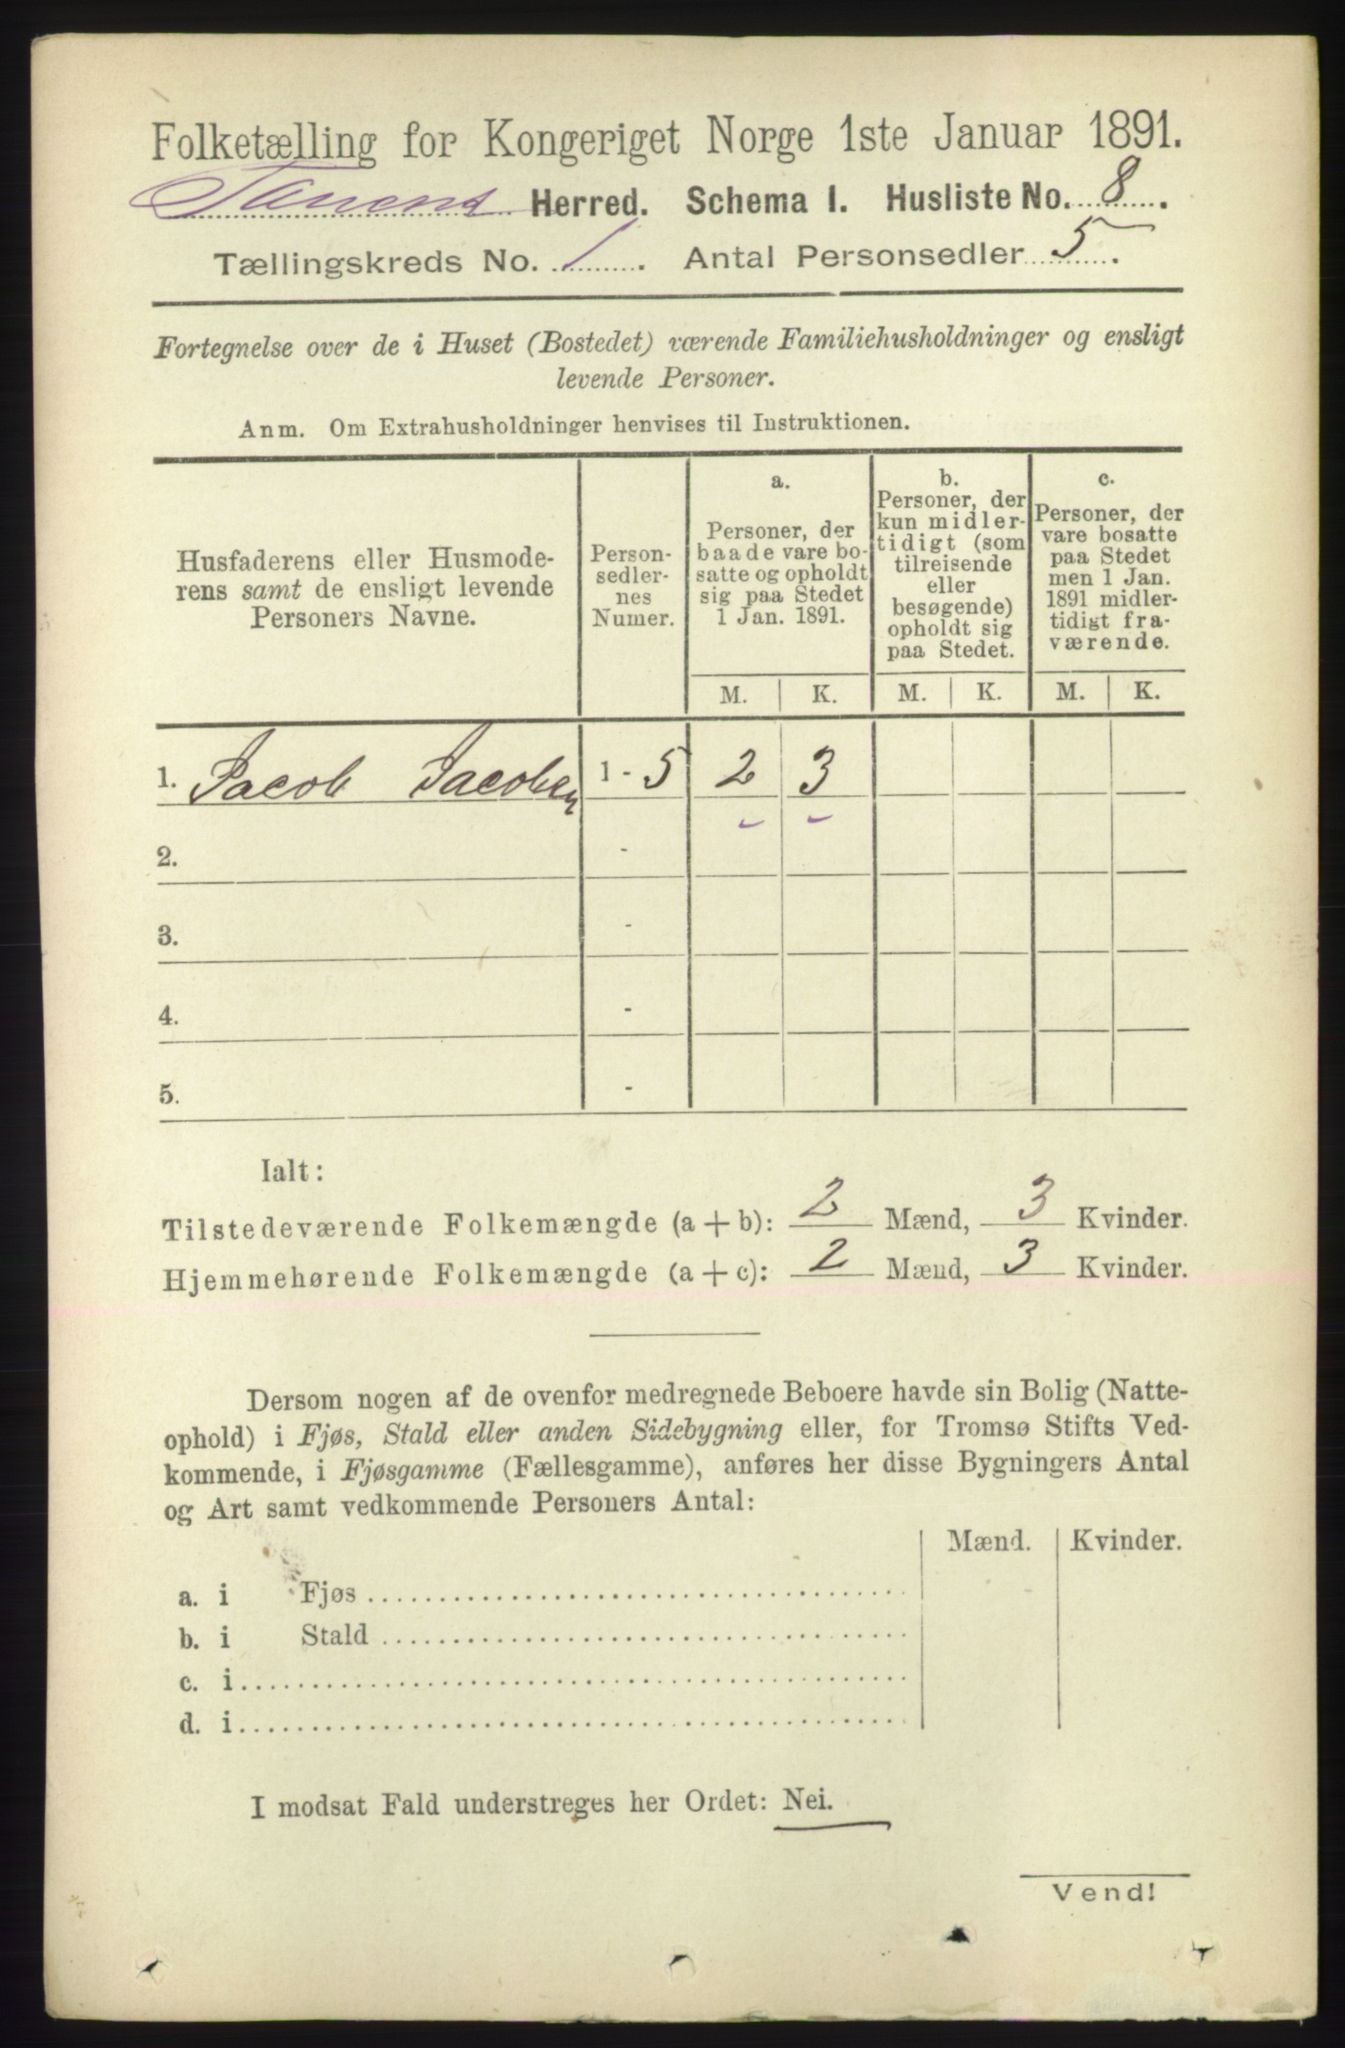 Folketælling for Kongeriget Norge 1ste Januar 1891.
Tanens Herred. Schema I. Husliste No. 8.
Tællingskreds No. 1. Antal Personsedler 5.
Fortegnelse over de i Huset (Bostedet) værende Familiehusholdninger og ensligt
levende Personer.
Anm. Om Extrahusholdninger henvises til Instruktionen.
Husfaderens eller Husmode-
rens samt de ensligt levende
Personers Navne.
Person-
sedler-
nes
Numer.
a.
Personer, der
baade vare bo-
satte og opholdt
sig paa Stedet
1 Jan. 1891.
b.
Personer, der
kun midler-
tidigt (som
tilreisende
eller
besøgende)
opholdt sig
paa Stedet.
c.
Personer, der
vare bosatte
paa Stedet
men 1 Jan.
1891 midler-
tidigt fra-
værende.
M. K. M. K. M. K.
1. Jacob Jacobsen 1 - 5 2 3
2. -
3. -
4. -
5. -
Ialt:
Tilstedeværende Folkemængde (a + b): 2 Mænd, 3 Kvinder.
Hjemmehørende Folkemængde (a + c): 2 Mænd, 3 Kvinder.
Dersom nogen af de ovenfor medregnede Beboere havde sin Bolig (Natte-
ophold) i Fjøs, Stald eller anden Sidebygning eller, for Tromsø Stifts Ved-
kommende, i Fjøsgamme (Fællesgamme), anføres her disse Bygningers Antal
og Art samt vedkommende Personers Antal:
Mænd. Kvinder.
a. i Fjøs
b. i Stald
c. i
d. i
I modsat Fald understreges her Ordet: Nei.
Vend!